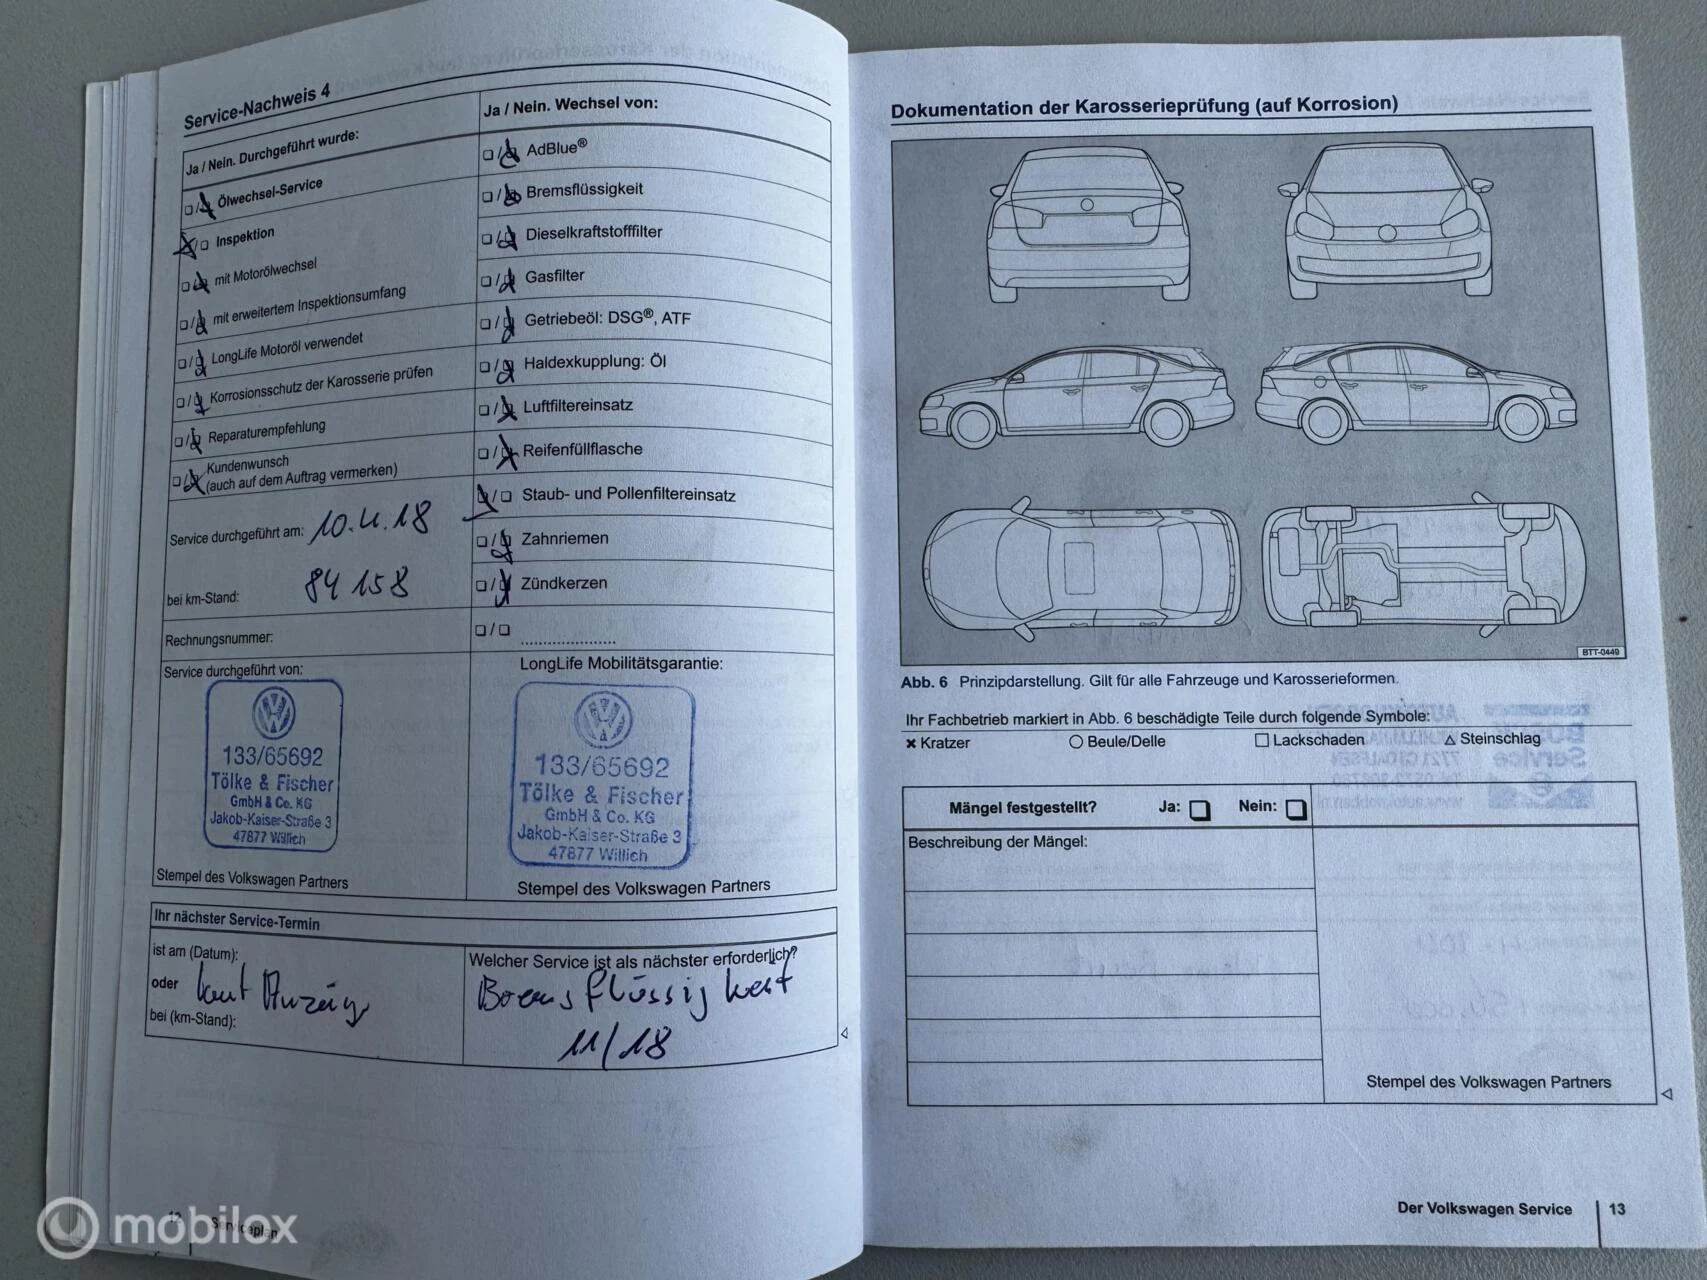 Service-Nachweis 4
Ja / Nein. Durchgeführt wurde:
Ölwechsel-Service
Inspektion
mit Motorölwechsel
mit erweitertem Inspektionsumfang
LongLife Motoröl verwendet
Korrosionsschutz der Karosserie prüfen
Reparaturempfehlung
Kundenwunsch
(auch auf dem Auftrag vermerken)
Service durchgeführt am: 10.4.18
bei km-Stand: 84 158
Rechnungsnummer:
Service durchgeführt von:
133/65692
Tölke & Fischer
GmbH & Co. KG
Jakob-Kaiser-Straße 3
47877 Willich
Stempel des Volkswagen Partners
Ja / Nein. Wechsel von:
AdBlue®
Bremsflüssigkeit
Dieselkraftstofffilter
Gasfilter
Getriebeöl: DSG®, ATF
Haldexkupplung: Öl
Luftfiltereinsatz
Reifenfüllflasche
Staub- und Pollenfiltereinsatz
Zahnriemen
Zündkerzen
LongLife Mobilitätsgarantie:
133/65692
Tölke & Fischer
GmbH & Co. KG
Jakob-Kaiser-Straße 3
47877 Willich
Stempel des Volkswagen Partners
Ihr nächster Service-Termin
ist am (Datum):
oder laut Anzeige
bei (km-Stand):
Welcher Service ist als nächster erforderlich?
Bremsflüssigkeit
11/18
12 Serviceplan
Dokumentation der Karosserieprüfung (auf Korrosion)
BTT-0449
Abb. 6 Prinzipdarstellung. Gilt für alle Fahrzeuge und Karosserieformen.
Ihr Fachbetrieb markiert in Abb. 6 beschädigte Teile durch folgende Symbole:
× Kratzer ○ Beule/Delle □ Lackschaden △ Steinschlag
Mängel festgestellt? Ja: Nein:
Beschreibung der Mängel:
Stempel des Volkswagen Partners
Der Volkswagen Service 13
mobilox